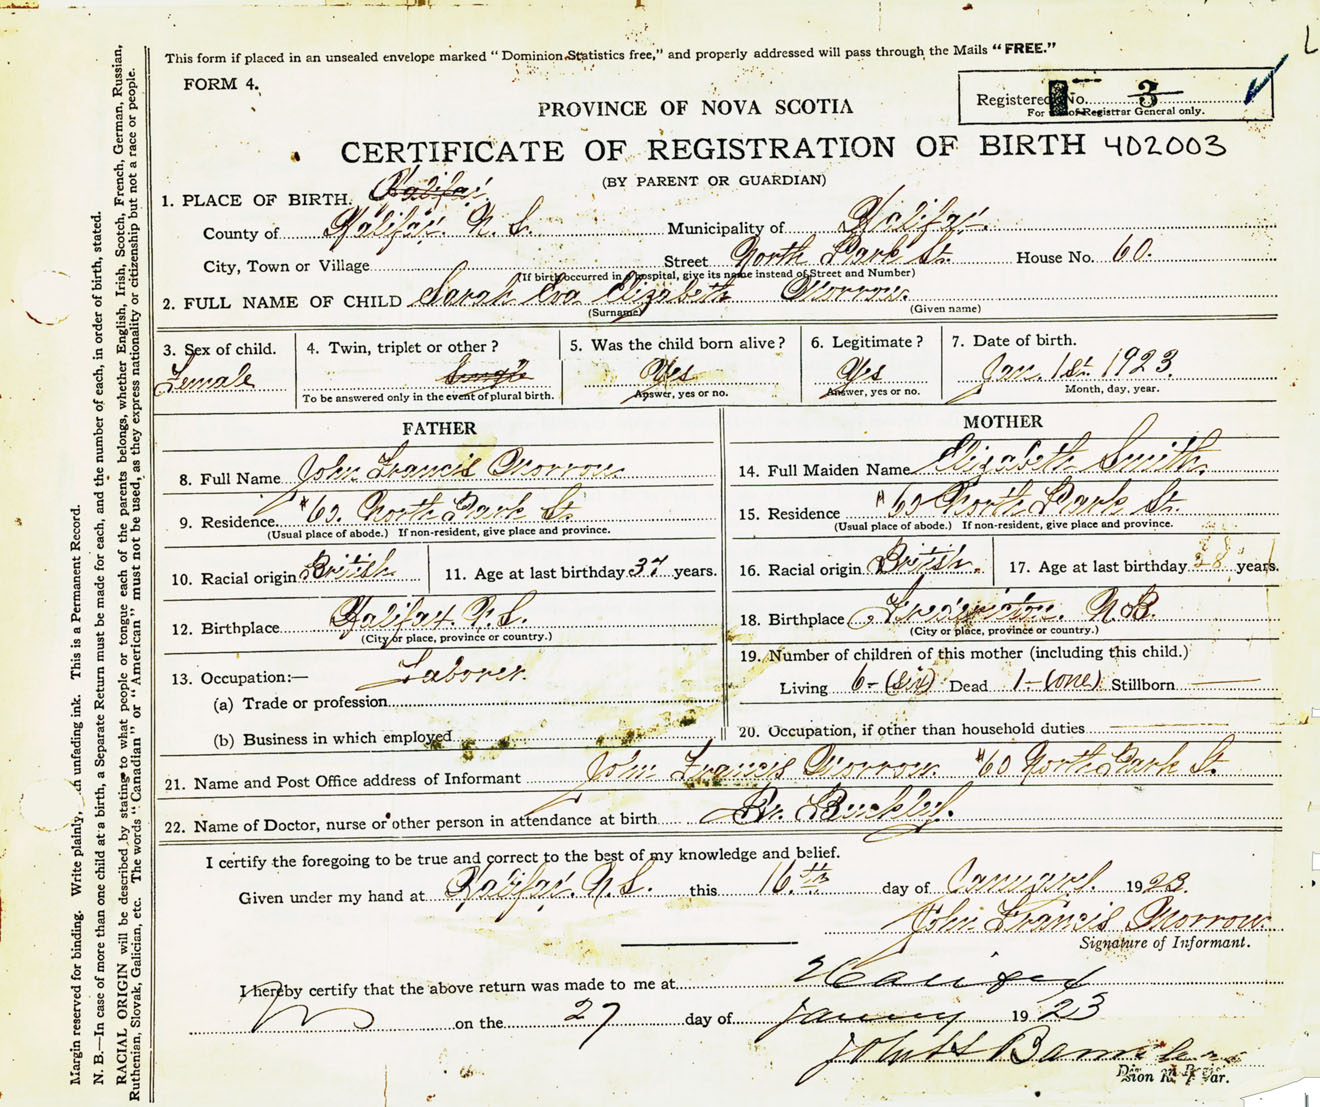 This form if placed in an unsealed envelope marked "Dominion Statistics free," and properly addressed will pass through the Mails "FREE."
FORM 4.
Registered No. 3
For of Registrar General only.
PROVINCE OF NOVA SCOTIA
CERTIFICATE OF REGISTRATION OF BIRTH 402003
(BY PARENT OR GUARDIAN)
1. PLACE OF BIRTH. Halifax
County of Halifax N.S. Municipality of Halifax.
City, Town or Village Street North Park St. House No. 60.
(If birth occurred in a hospital, give its name instead of Street and Number)
2. FULL NAME OF CHILD Sarah Eva Elizabeth Morrow.
(Surname) (Given name)
3. Sex of child. 4. Twin, triplet or other? 5. Was the child born alive? 6. Legitimate? 7. Date of birth.
Female Single Yes Yes Jan. 1st. 1923.
To be answered only in the event of plural birth. Answer, yes or no. Answer, yes or no. Month, day, year.
FATHER MOTHER
8. Full Name John Francis Morrow 14. Full Maiden Name Elizabeth Smith.
9. Residence. #60. North Park St. 15. Residence #60 North Park St.
(Usual place of abode.) If non-resident, give place and province. (Usual place of abode.) If non-resident, give place and province.
10. Racial origin British 11. Age at last birthday 37 years. 16. Racial origin British. 17. Age at last birthday 38 years.
12. Birthplace Halifax N.S. 18. Birthplace Fredericton. N.B.
(City or place, province or country.) (City or place, province or country.)
13. Occupation:— Laborer.
(a) Trade or profession
(b) Business in which employed
19. Number of children of this mother (including this child.)
Living 6-(six) Dead 1-(one) Stillborn —
20. Occupation, if other than household duties
21. Name and Post Office address of Informant John Francis Morrow. #60 North Park St.
22. Name of Doctor, nurse or other person in attendance at birth Dr. Buckley.
I certify the foregoing to be true and correct to the best of my knowledge and belief.
Given under my hand at Halifax. N.S. this 16th day of January. 1923.
John Francis Morrow
Signature of Informant.
I hereby certify that the above return was made to me at Halifax
on the 27 day of January 1923
John H
Margin reserved for binding. Write plainly, unfading ink. This is a Permanent Record.
N. B.—In case of more than one child at a birth, a Separate Return must be made for each, and the number of each, in order of birth, stated.
RACIAL ORIGIN will be described by stating to what people or tongue each of the parents belongs, whether English, Irish, Scotch, French, German, Russian,
Ruthenian, Slovak, Galician, etc. The words "Canadian" or "American" must not be used, as they express nationality or citizenship but not a race or people.